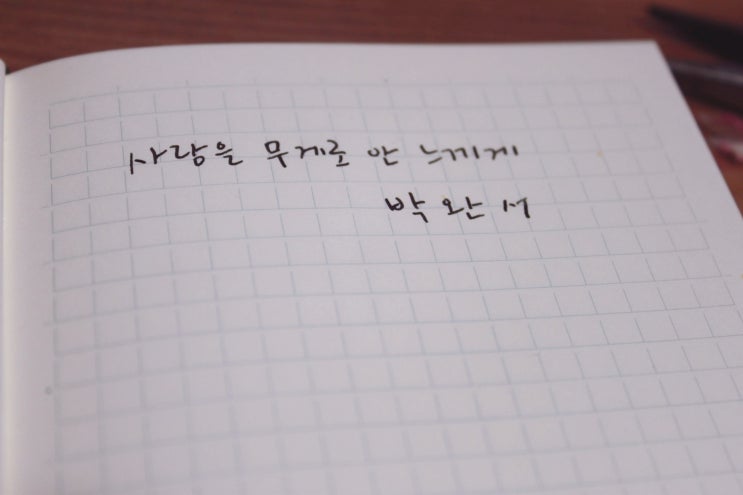 사랑을 무게로 안 느끼게
박완서